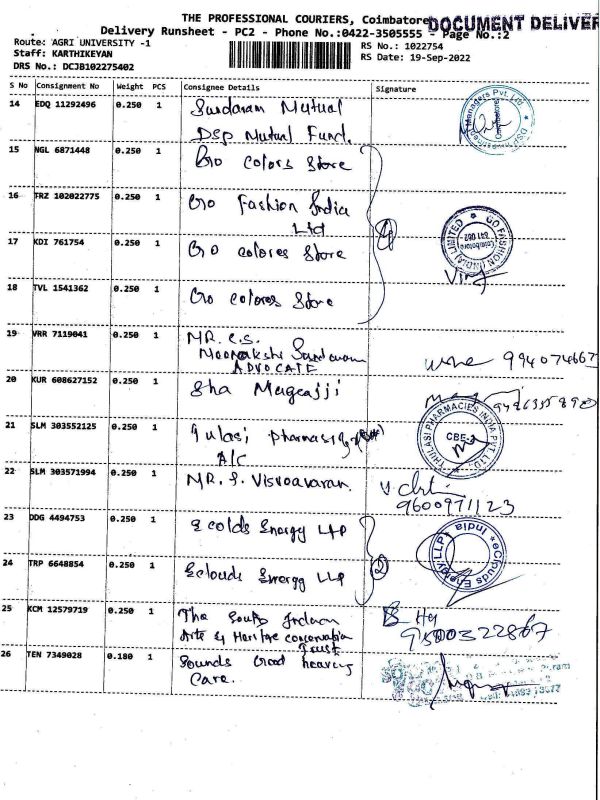 THE PROFESSIONAL COURIERS, Coimbatore
DOCUMENT DELIVER
Delivery Runsheet - PC2 - Phone No.:0422-3505555 - Page No.:2
Route: AGRI UNIVERSITY -1
RS No.: 1022754
Staff: KARTHIKEYAN
RS Date: 19-Sep-2022
DRS No.: DCJB102275402
S No Consignment No Weight PCS Consignee Details Signature
14 EDQ 11292496 0.250 1 Sundaram Mutual
DSP Mutual Fund.
15 NGL 6871448 0.250 1 Go colors Store
16 TRZ 102022775 0.250 1 Go Fashion India
Ltd
4
17 KDI 761754 0.250 1 Go colores Store
GO FASHION (INDIA) LIMITED
Coimbatore
18 TVL 1541362 0.250 1 Go colores Store
19 VRR 7119041 0.250 1 MR. C.S.
Meenakshi Sundaram
ADVOCATE
20 KUR 608627152 0.250 1 Sha Magrajji
21 SLM 303552125 0.250 1 Tulasi pharmasi
A/C
THULASI PHARMACIES INDIA PVT. LTD.
CBE-2
22 SLM 303571994 0.250 1 MR. S.
9600971123
23 DDG 4494753 0.250 1 Ecolds Energy LLP
24 TRP 6648854 0.250 1 Eclouds Energy LLP
2
eClouds Energy LLP India
25 KCM 12579719 0.250 1 The South Indian
Arts & Heritage conservation
Trust
9500322867
26 TEN 7349028 0.180 1 Sounds Good hearing
Care.